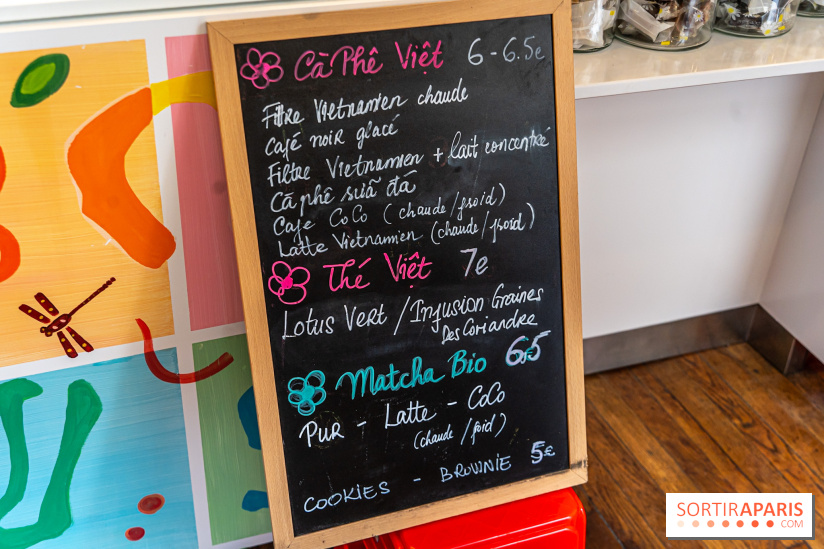 Cà Phê Việt 6 - 6.5e
Filtre Vietnamien chaude
Café noir glacé
Filtre Vietnamien + lait concentré
Cà phê suã đá
Cafe CoCo (chaude/froid)
Latte Vietnamien (chaude/froid)
Thé Việt 7e
Lotus Vert / Infusion Graines
Des Coriandre
Matcha Bio 6.5
Pur - Latte - CoCo
(chaude/foid)
COOKIES - BROWNIE 5€
SORTIRAPARIS
.COM